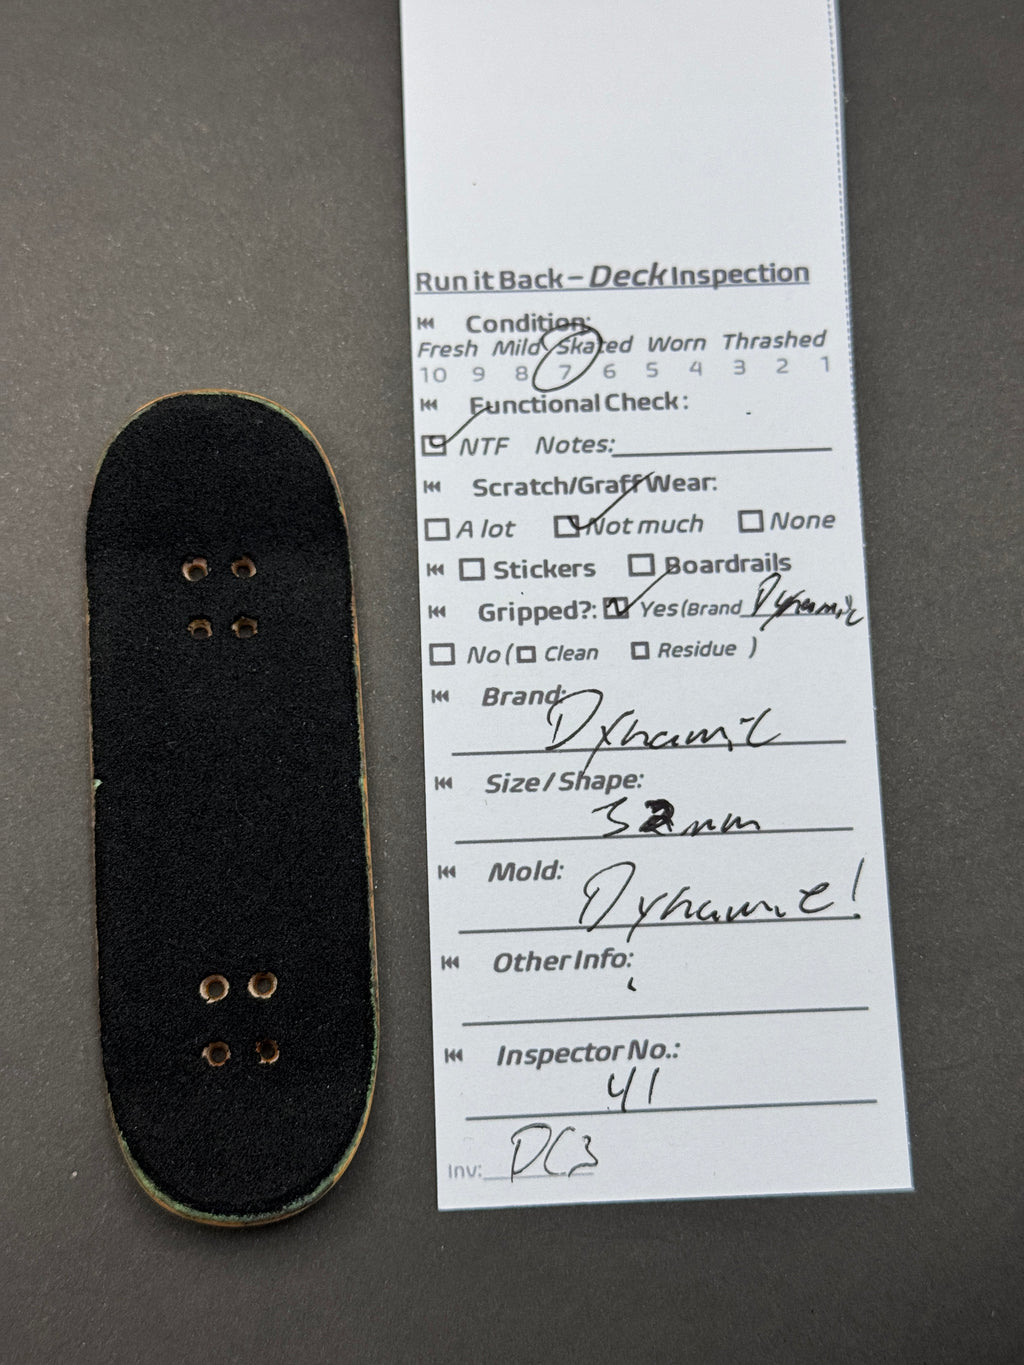 Run it Back – Deck Inspection
Condition:
Fresh Mild Skated Worn Thrashed
10 9 8 7 6 5 4 3 2 1
Functional Check:
NTF Notes:
Scratch/Graff Wear:
A lot Not much None
Stickers Boardrails
Gripped?: Yes (Brand Dynamic
No ( Clean Residue )
Brand:
Dynamic
Size / Shape:
32mm
Mold:
Dynamic!
Other Info:
Inspector No.:
41
Inv: DC3